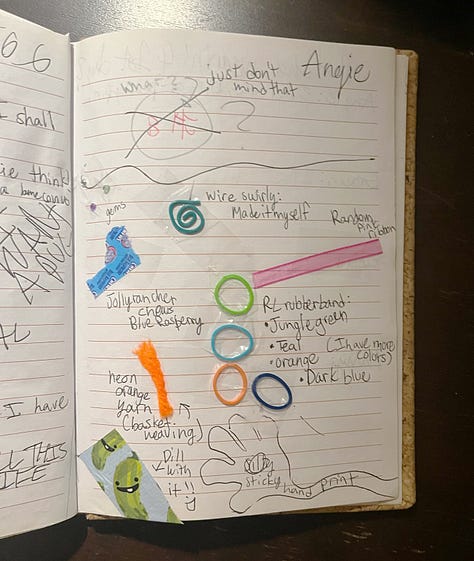 Angie
what?
just don't
mind that
?
gems
wire swirly:
Made it myself
Random
pink
ribbon
Jollyrancher
chews
Blue Raspberry
RL rubberband:
• Jungle green
• Teal (I have more
colors)
• orange
• Dark blue
neon
orange
yarn
(basket
weaving)
Dill
with
it!!
sticky hand print
I shall
ie think
I have